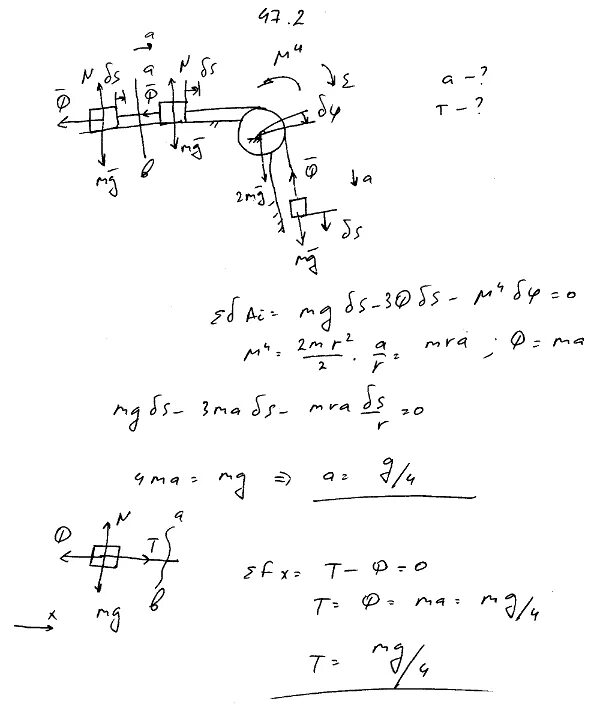 47.2
a
M^u
N δs a N δs ε a - ?
Φ̄ Φ̄ δφ T - ?
mḡ b mḡ 2mḡ Φ̄ a
δs
mḡ
ΣδAi = mg δs - 3Φ δs - M^u δφ = 0
M^u = 2mr²/2 · a/r = mra ; Φ = ma
mg δs - 3ma δs - mra δs/r = 0
4ma = mg ⇒ a = g/4
Φ N T a
mg b
x
ΣFx = T - Φ = 0
T = Φ = ma = mg/4
T = mg/4